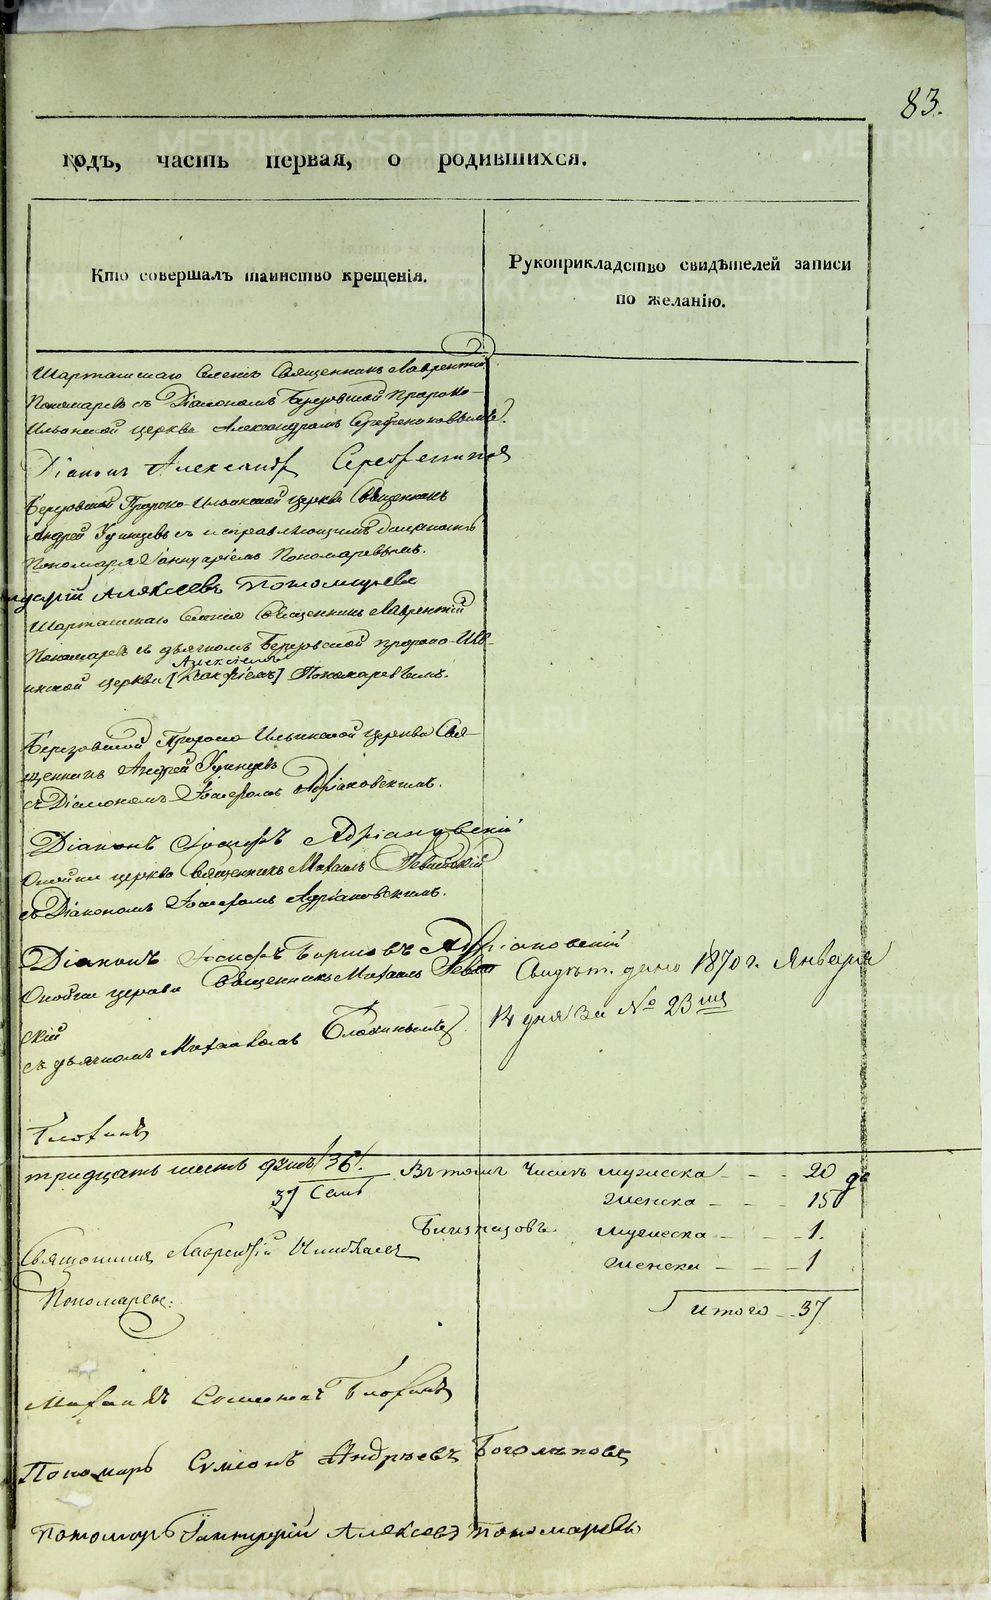 83.
годъ, часть первая, о родившихся.
Кто совершалъ таинство крещенія.
Рукоприкладство свидѣтелей записи
по желанію.
Шарташскаго Селенія Священникъ Лаврентій
Пономаревъ съ Діакономъ Березовской Пророко-
Ильинской церкви Александромъ
Діаконъ Александръ
Березовской Пророко-Ильинской церкви Священникъ
Андрей Удинцевъ съ исправляющимъ должность
Пономаря Іаннуаріемъ Пономаревымъ.
Алексеевъ Пономаревъ
Шарташскаго Селенія Священникъ Лаврентій
Пономаревъ съ дьячкомъ Березовской пророко-Иль-
Алексіемъ
инской церкви Пономаревымъ.
Березовской Пророко Ильинской церкви Свя-
щенникъ Андрей Удинцевъ
съ Діакономъ Іосифомъ Адріановскимъ.
Діаконъ Іосифъ Адріановскій
церкви Священникъ Михаилъ Левитскій
съ Діакономъ Іосифомъ Адріановскимъ.
Діаконъ Іосифъ Адріановскій
церкви Священникъ Михаилъ Левит
скій
съ дьячкомъ Михаиломъ Блохинымъ
Свидѣт. дано 1870 г. Января
14 дня за № 23 мъ
Блохинъ
тридцать шесть /36/.
37 Семь
Въ томъ числѣ мужеска - - - 20
женска - - - 15
Близнецовъ мужеска - - - 1.
женска - - - 1
Итого - 37
Священникъ Лаврентій
Пономаревъ.
Михаилъ Блохинъ
Пономарь Сумеонъ Андреевъ Богомоловъ
Пономарь Іаннуарій Алексеевъ Пономаревъ
METRIKI.GASO-URAL.RU